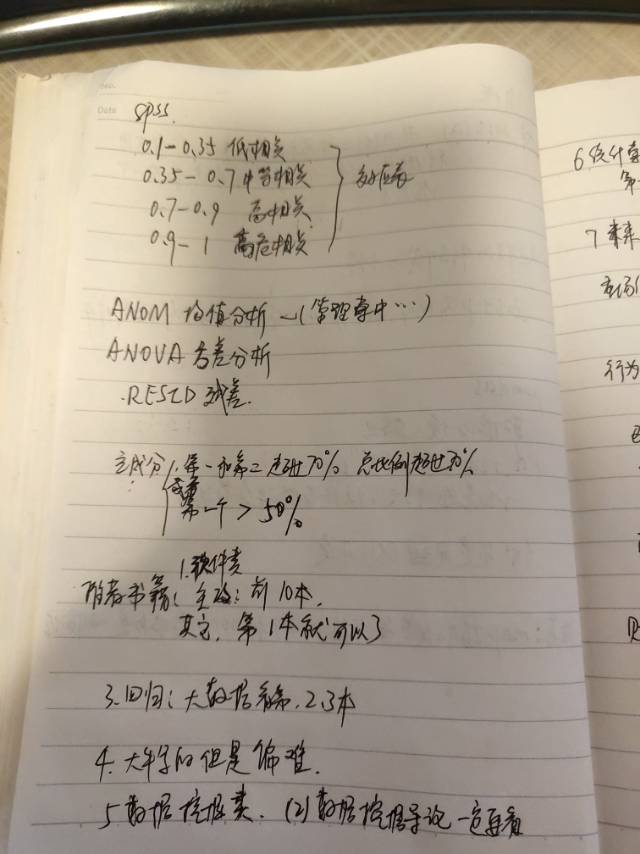 No.
Date
spss.
0.1-0.35 低相关
0.35-0.7 中等相关
0.7-0.9 高相关
0.9-1 高危相关
ANOM 均值分析 (管理学中…)
ANOVA 方差分析
RESID 残差
主成分 1. 第一和第二 超过70% 总比例超过70%
或者
第一个>50%
1.软件类
推荐书籍: 主攻: 前10本.
其它, 第1本就可以了
3.回归: 大数据 2.3本
4. 大牛写的但是偏难.
5 数据挖掘类. (2) 数据挖掘导论 一定要看
6 统计学
第
7 未来
市场
行为